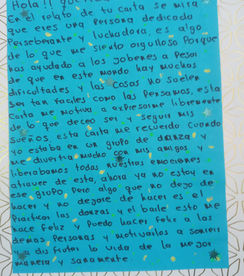 Hola!! que
En el relato de tu carta se mira
que eres una persona dedicada
Perseberante y luchadora, es algo
de lo que me siento orgulloso Porque
has ayudado a los joberes a pesar
de que en este mundo hay muchas
dificultades y las cosas no suelen
ser tan faciles como las pensamos, esta
carta me motiva a expresarme libremente
de lo que deceo ser y seguir mis
sueños, esta carta me recuerdo cuando
yo estaba en un grupo de danza y
me divertia mucho con mis amigos y
liberabamos todas nuestras emociones
atravez de esta, ahora ya no estoy en
ese grupo, Pero algo que no dejo de
hacer y no dejare de hacer es el
Practicar las danzas y el baile esto me
hace feliz y puedo hacer feliz a las
demas Personas y motivarlos a sonreir
y a disfrutar la vida de la mejor
manera y sanamente.